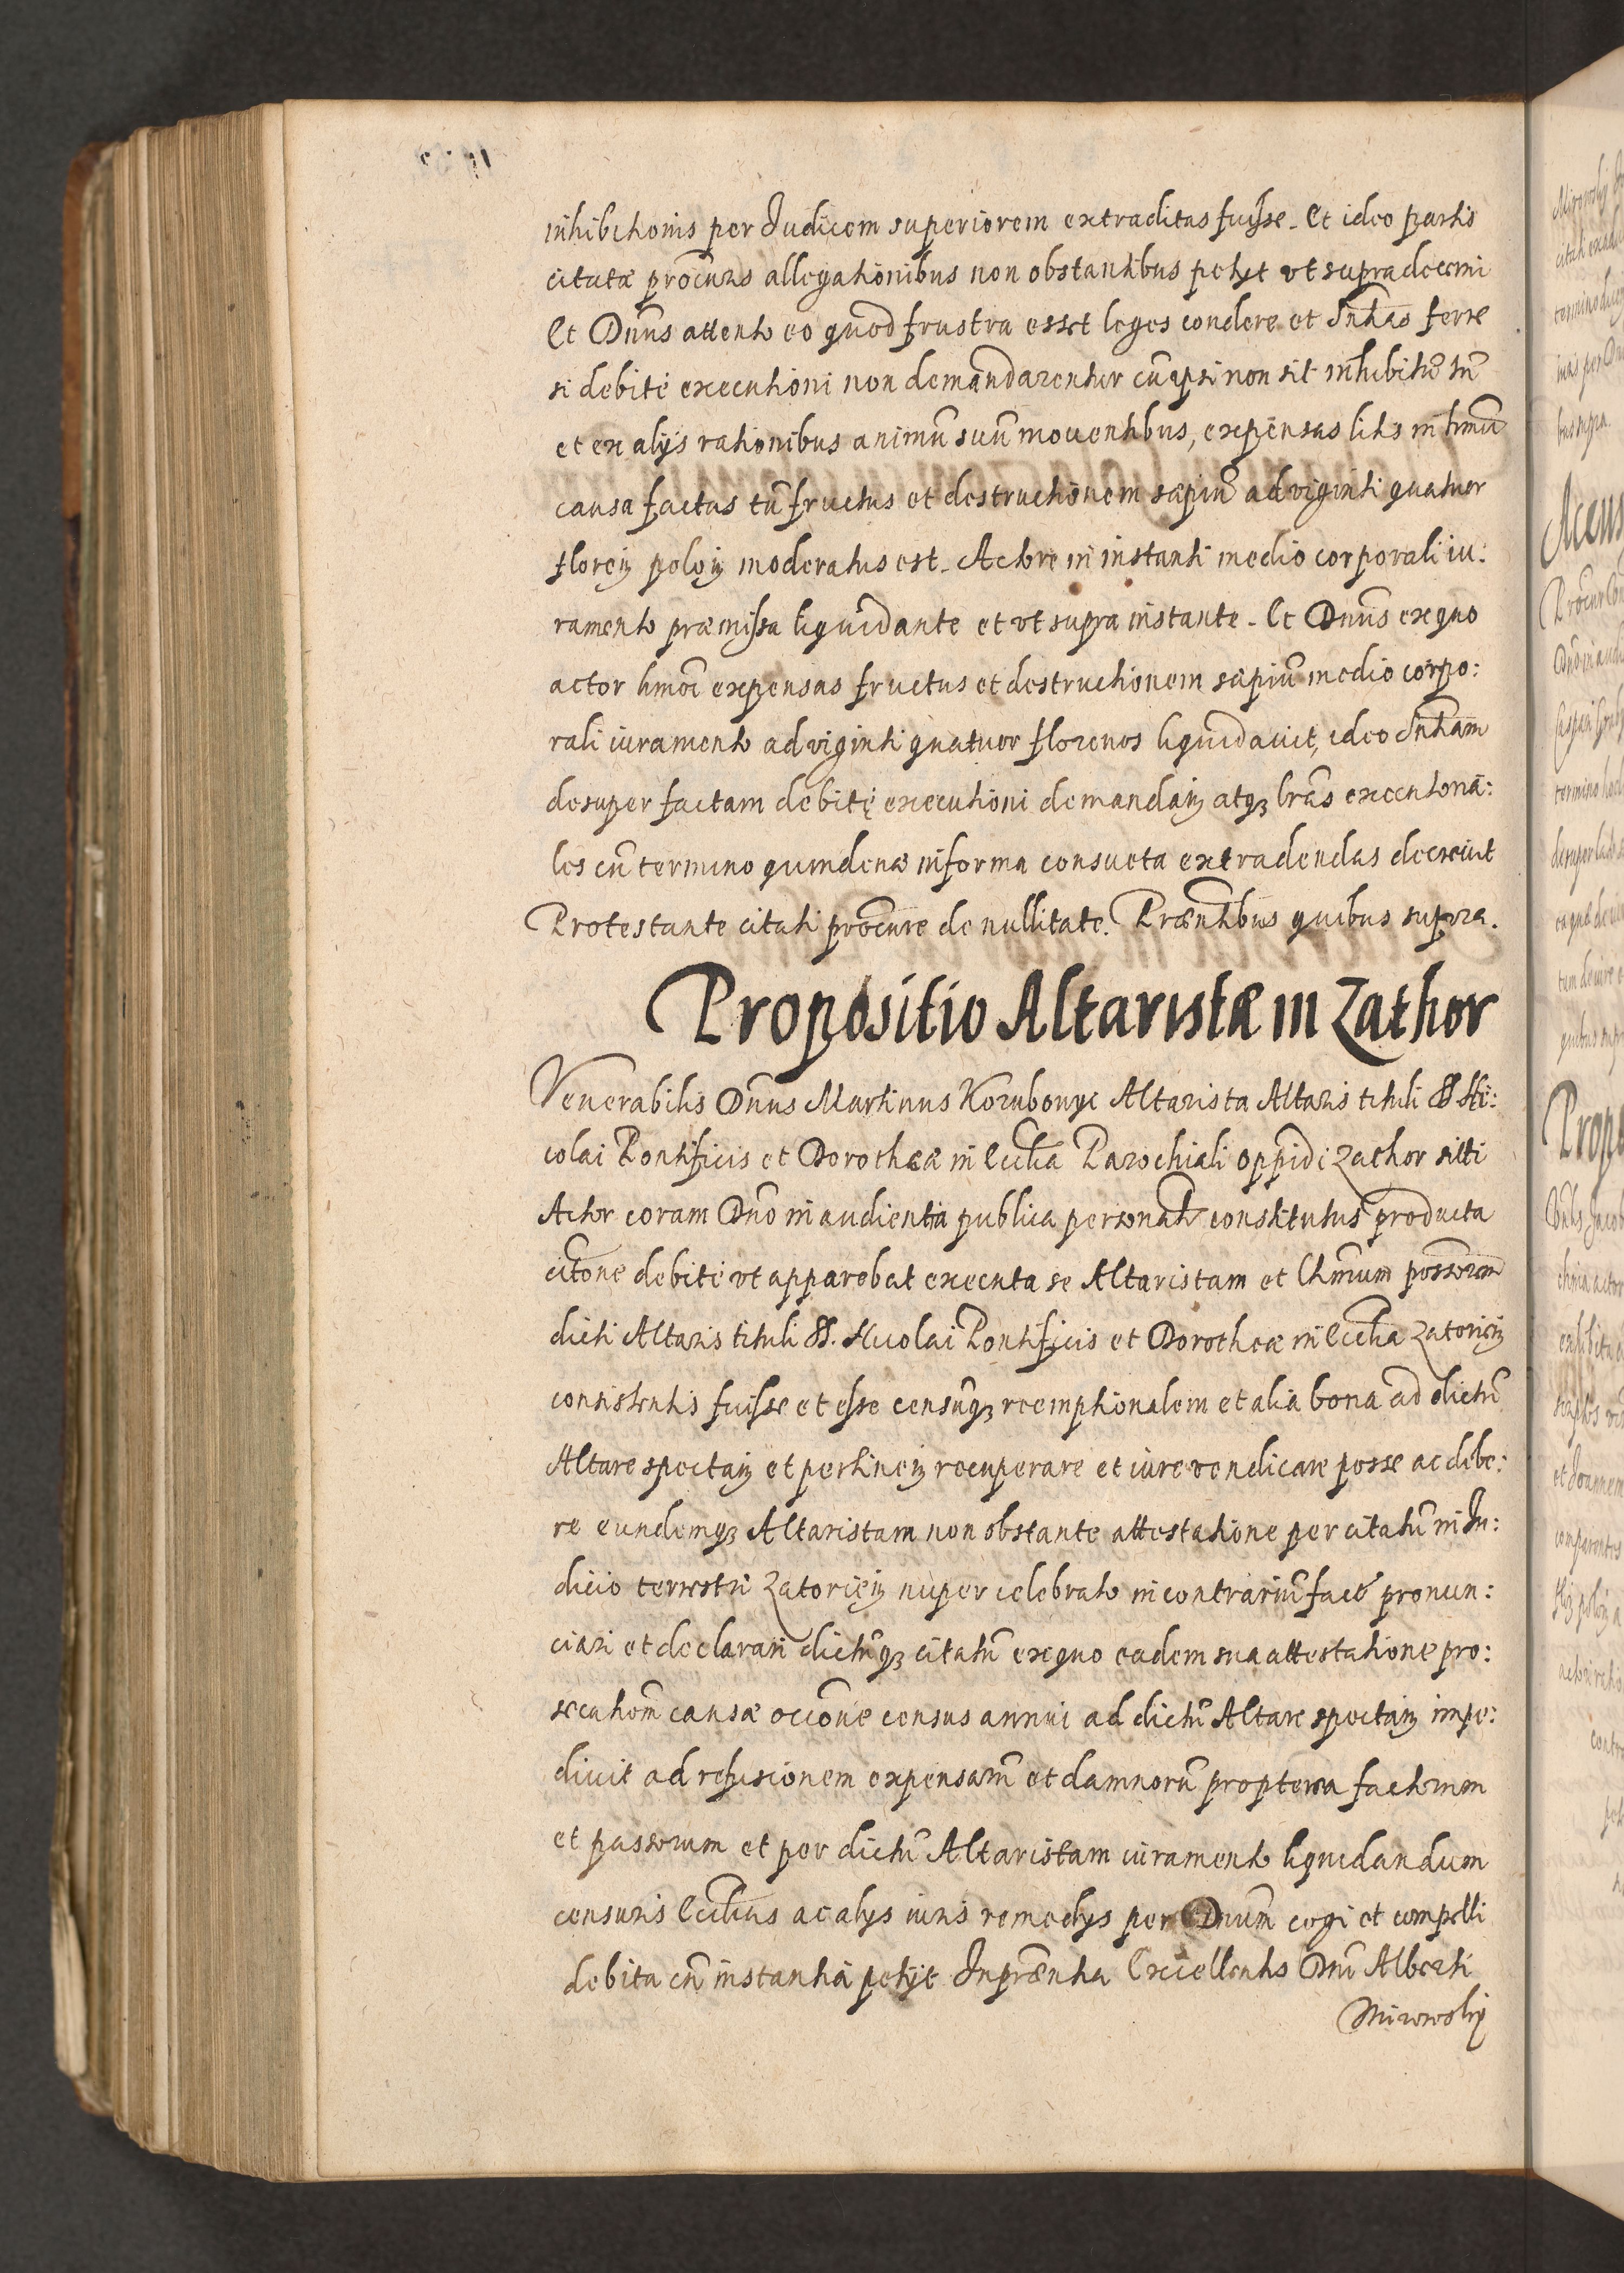 inhibitionis per Judicem superiorem extraditas fuisse. Et ideo partis
citatæ procūris allegationibus non obstantibus petijt vt supra decerni
Et Dnūs attento eo quod frustra esset leges condere et Sntīas ferre
si debite executioni non demandarentur cū ipsi non sit inhibitū tū
et ex alijs rationibus animū suū mouentibus, expensas litis in hmōi
causa factas tū fructus et destructionem sæpiū ad viginti quatuor
floreņ poloņ moderatus est. Actore in instanti medio corporali iu:
ramento præmissa liquidante et vt supra instante. Et Dnūs ex quo
actor hmōi expensas fructus et destructionem sæpiū medio corpo:
rali iuramento ad viginti quatuor florenos liquidauit, ideo Sntīam
desuper factam debitę executioni demandaņ atqꝫ lrās executoriā:
les cū termino quindenæ in forma consueta extradendas decreuit
Protestante citati procūre de nullitate. Præntībus quibus supra.
Propositio Altaristæ in Zathor
Venerabilis Dnūs Martinus Korubonyc Altarista Altaris tituli SS Ni:
colai Pontificis et Dorotheæ in Ecclīa Parochiali oppidi Zathor siti
Actor coram Dnō in audientia publica personalr̄ constitutus producta
citōne debite vt apparebat executa se Altaristam et Lītimum possōrem
dicti Altaris tituli SS. Nicolai Pontificis et Dorotheæ in Ecclīa Zatorieņ
consistentis fuisse et esse censūqꝫ reemptionalem et alia bona ad dictū
Altare spectaņ et pertineņ recuperare et iure vendicare posse ac debe:
re eundemqꝫ Altaristam non obstante attestatione per citatū in Ju:
dicio terrestri Zatorieņ nuper celebrato in contrariū factē pronun:
ciari et declarari dictūqꝫ citatū ex quo eadem sua attestatione pro:
secutionē causæ occōne census annui ad dictū Altare spectaņ impe:
diuit ad refusionem expensarū et damnorū propterea factorum
et passorum et per dictū Altaristam iuramento liquidandum
censuris Ecclīcis ac alijs iuris remedijs per Dnūm cogi et compelli
debita cū instantia petijt In præntīa Excellentis Dnī Alberti
Mirowskỹ